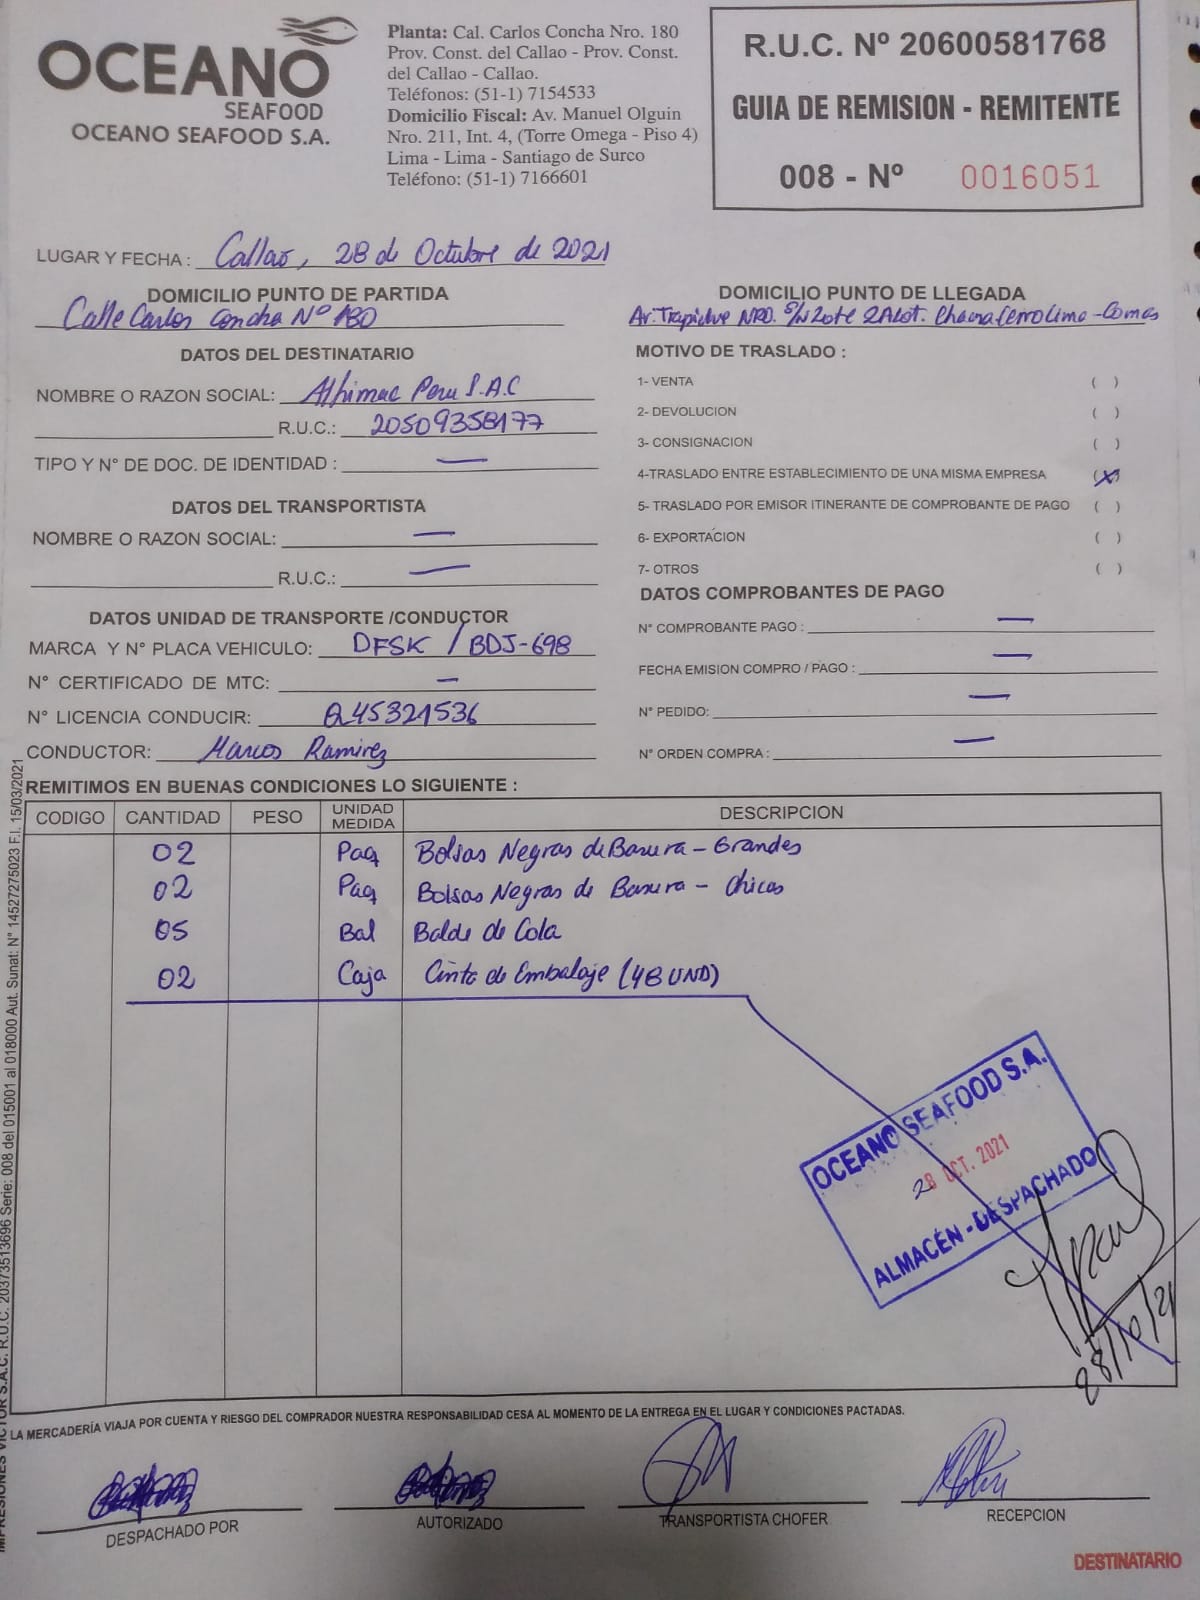 OCEANO
SEAFOOD
OCEANO SEAFOOD S.A.
Planta: Cal. Carlos Concha Nro. 180
Prov. Const. del Callao - Prov. Const.
del Callao - Callao.
Teléfonos: (51-1) 7154533
Domicilio Fiscal: Av. Manuel Olguin
Nro. 211, Int. 4, (Torre Omega - Piso 4)
Lima - Lima - Santiago de Surco
Teléfono: (51-1) 7166601
R.U.C. Nº 20600581768
GUIA DE REMISION - REMITENTE
008 - Nº 0016051
LUGAR Y FECHA : Callao, 28 de Octubre de 2021
DOMICILIO PUNTO DE PARTIDA
Calle Carlos Concha Nº 180
DOMICILIO PUNTO DE LLEGADA
Av. Trapiche NRO. S/N Lote 2A Lot. Chacra Cerro Lima - Comas
DATOS DEL DESTINATARIO
NOMBRE O RAZON SOCIAL: Peru S.A.C
R.U.C.: 20509358177
TIPO Y N° DE DOC. DE IDENTIDAD : —
DATOS DEL TRANSPORTISTA
NOMBRE O RAZON SOCIAL: —
R.U.C.: —
DATOS UNIDAD DE TRANSPORTE /CONDUCTOR
MARCA Y N° PLACA VEHICULO: DFSK / BDJ-698
N° CERTIFICADO DE MTC: —
N° LICENCIA CONDUCIR: Q45321536
CONDUCTOR: Marcos Ramirez
MOTIVO DE TRASLADO :
1- VENTA ( )
2- DEVOLUCION ( )
3- CONSIGNACION ( )
4-TRASLADO ENTRE ESTABLECIMIENTO DE UNA MISMA EMPRESA (X)
5- TRASLADO POR EMISOR ITINERANTE DE COMPROBANTE DE PAGO ( )
6- EXPORTACION ( )
7- OTROS ( )
DATOS COMPROBANTES DE PAGO
N° COMPROBANTE PAGO : —
FECHA EMISION COMPRO / PAGO : —
N° PEDIDO: —
N° ORDEN COMPRA : —
REMITIMOS EN BUENAS CONDICIONES LO SIGUIENTE :
CODIGO CANTIDAD PESO UNIDAD MEDIDA DESCRIPCION
02 Paq Bolsas Negras de Basura - Grandes
02 Paq Bolsas Negras de Basura - Chicas
05 Bal Balde de Cola
02 Caja Cinta de Embalaje (48 UND)
OCEANO SEAFOOD S.A.
28 OCT. 2021
ALMACÉN - DESPACHADO
28/10/21
LA MERCADERÍA VIAJA POR CUENTA Y RIESGO DEL COMPRADOR NUESTRA RESPONSABILIDAD CESA AL MOMENTO DE LA ENTREGA EN EL LUGAR Y CONDICIONES PACTADAS.
DESPACHADO POR
AUTORIZADO
TRANSPORTISTA CHOFER
RECEPCION
DESTINATARIO
IMPRESIONES VICTOR S.A.C. R.U.C. 20373513696 Serie: 008 del 015001 al 018000 Aut. Sunat: N° 14527275023 F.I. 15/03/2021